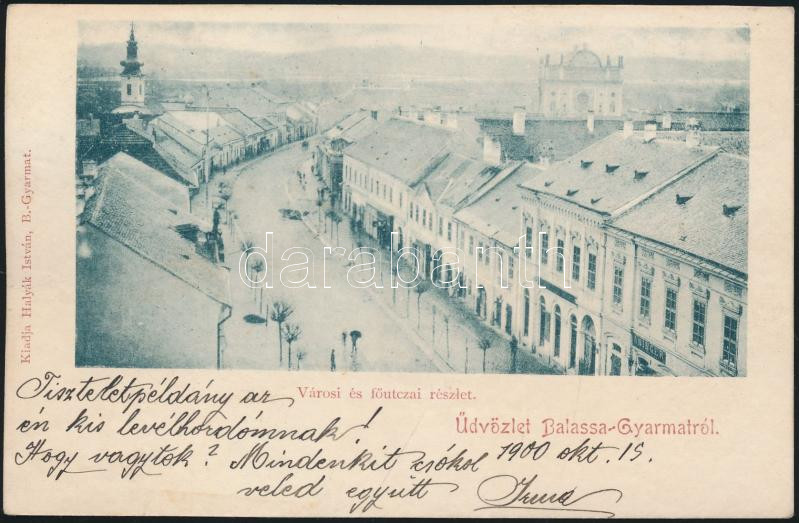 Kiadja Halyák István, B.-Gyarmat.
darabanth
Városi és főutczai részlet.
Üdvözlet Balassa-Gyarmatról.
Tiszteletpéldány az
én kis levélhordómnak!
Hogy vagytok? Mindenkit csókol 1900 okt. 15.
veled együtt Irma